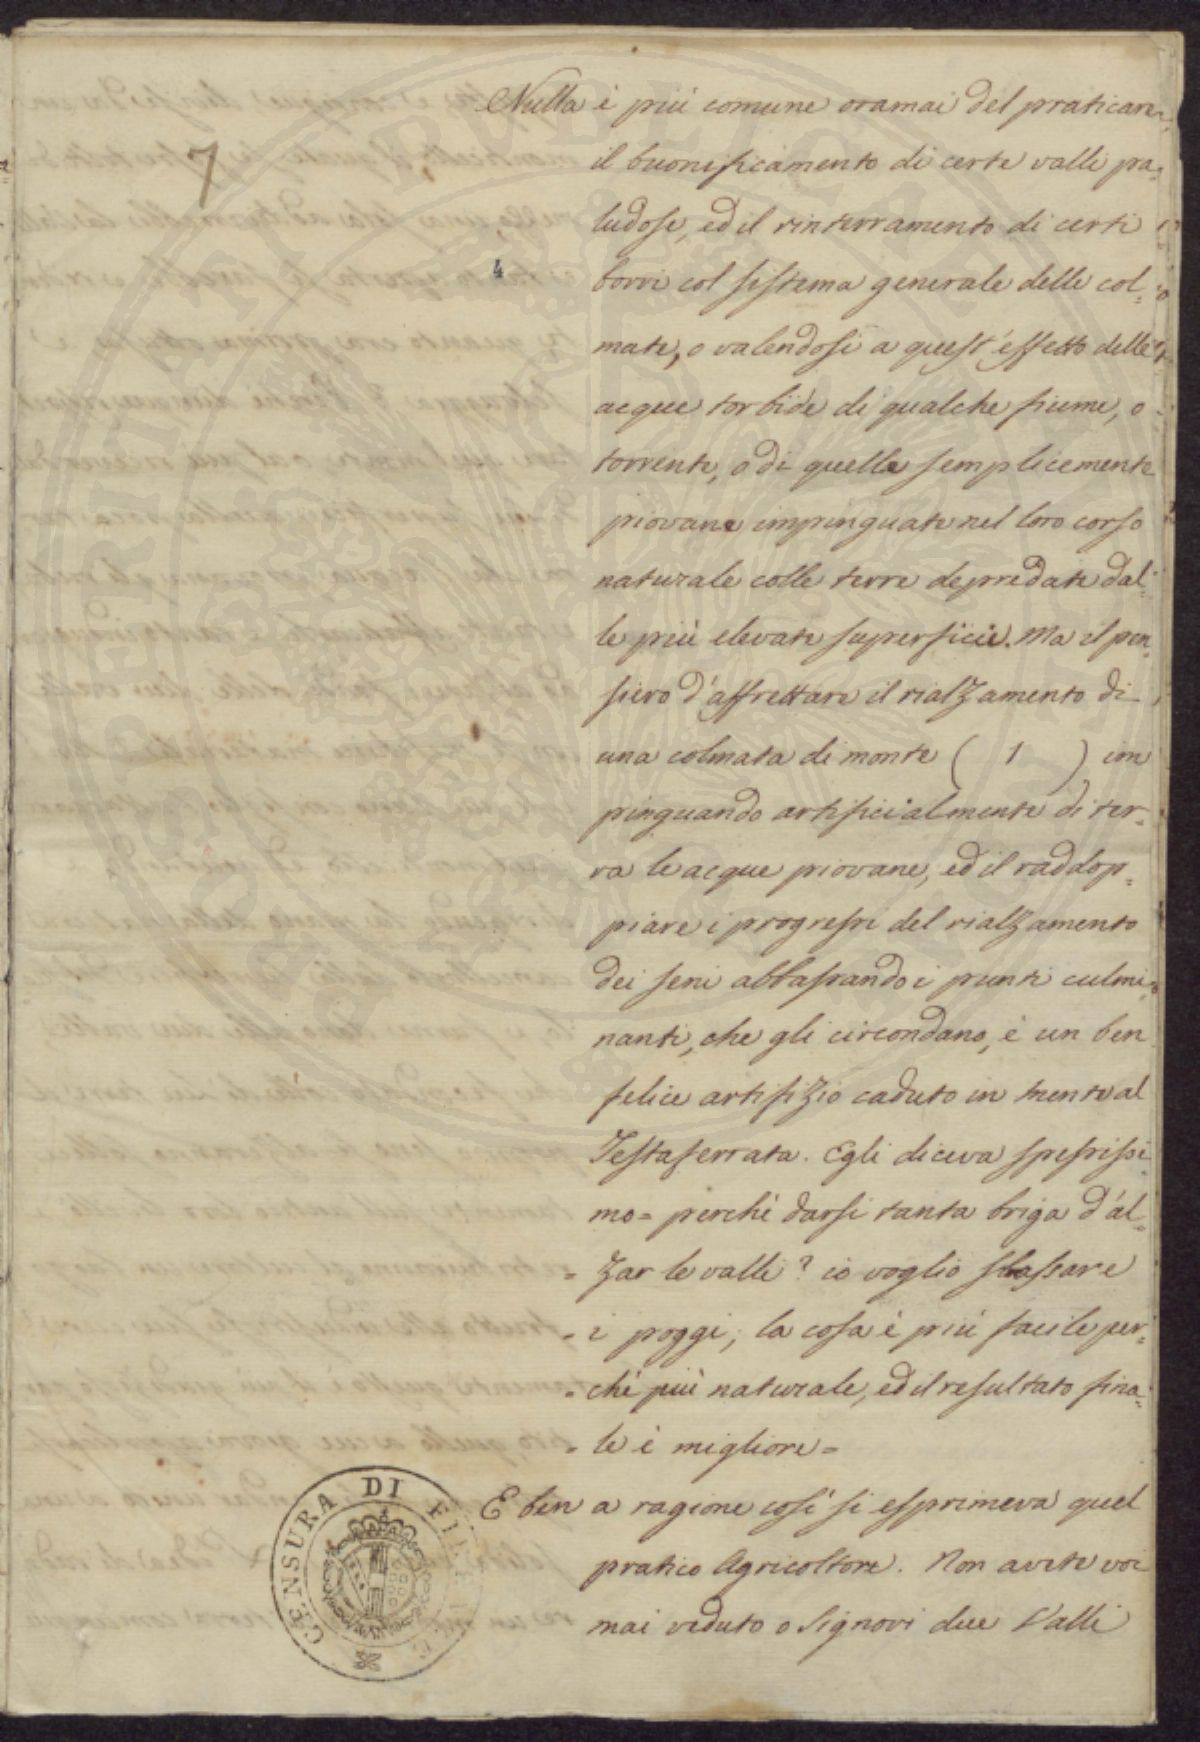 Nulla è più comune oramai del praticare
7
il buonificamento di certe valli pa=
ludose, ed il rinterramento di certi
4
borri col sistema generale delle col=
mate, o valendosi a quest'effetto delle
acque torbide di qualche fiume, o
torrente, o di quelle semplicemente
piovane impinguate nel loro corso
naturale colle terre depredate dal=
le più elevate superficie. Ma il pen=
siero d'affrettare il rialzamento di
una colmata di monte ( 1 ) im
pinguando artificialmente di ter=
ra le acque piovane, ed il raddop=
piare i progressi del rialzamento
dei seni abbassando i punti culmi=
nanti, che gli circondano, è un ben
felice artifizio caduto in mente al
Testaferrata. Egli diceva spessissi
mo= perchè darsi tanta briga d'al=
= zar le valli? io voglio sbassare
= i poggi; la cosa è più facile per=
= chè più naturale, ed il resultato fina=
= le è migliore=
E ben a ragione così si esprimeva quel
pratico Agricoltore. Non avete voi
mai veduto o Signori due Valli
CENSURA DI FIRENZE